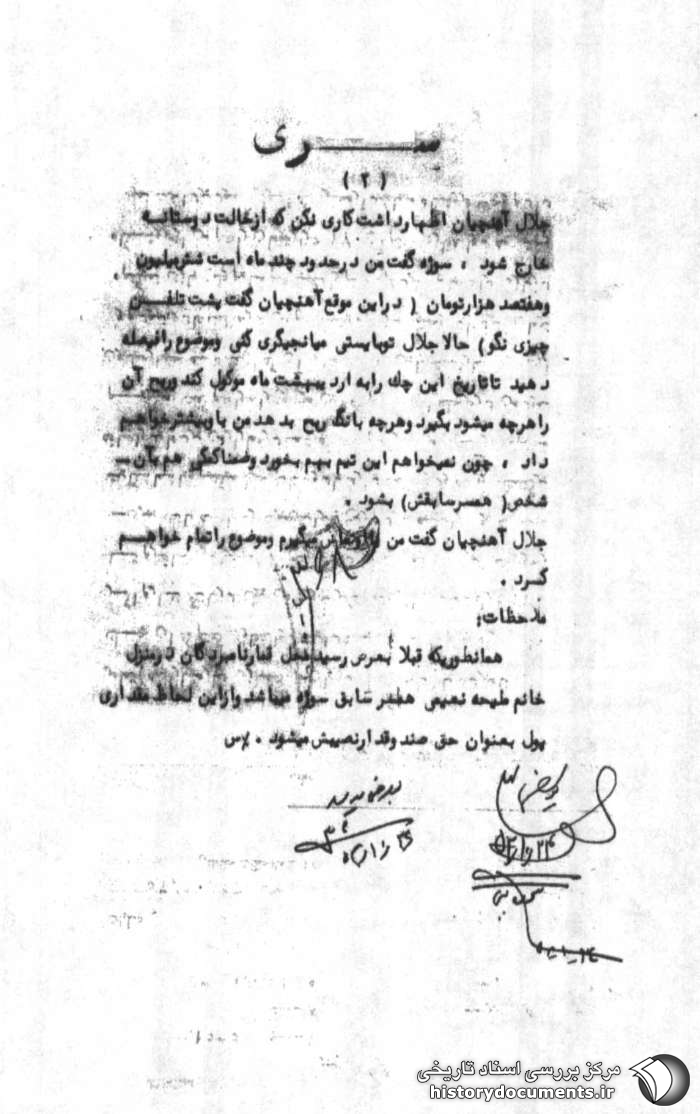 سری
( ۲ )
جلال آهنچیان اظهار داشت کاری نکن که از حالت دوستانه
خارج شود ، سوژه گفت من در حدود چند ماه است شش میلیون
و هفتصد هزار تومان ( در این موقع آهنچیان گفت پشت تلفن
چیزی نگو ) حالا جلال تو بایستی میانجیگری کنی و موضوع را فیصله
دهید تا تاریخ این چک را به اردیبهشت ماه موکول کند و ربح آن
را هرچه میشود بگیرد و هرچه بانک ربح بدهد من با و بیشتر خواهم
داد ، چون نمیخواهم این تیم بهم بخورد و ضمنا کمکی هم بآن
شخص ( همسر سابقش ) بشود .
جلال آهنچیان گفت من میگیرم و موضوع را تمام خواهم
کرد .
ملاحظات:
همانطوریکه قبلا بعرض رسید محل قمار نامبردگان در منزل
خانم ملیحه نعیمی همسر سابق سوژه میباشد و از این لحاظ مقداری
پول بعنوان حق صندوقدار نصیبش میشود . /س
مرکز بررسی اسناد تاریخی
historydocuments.ir